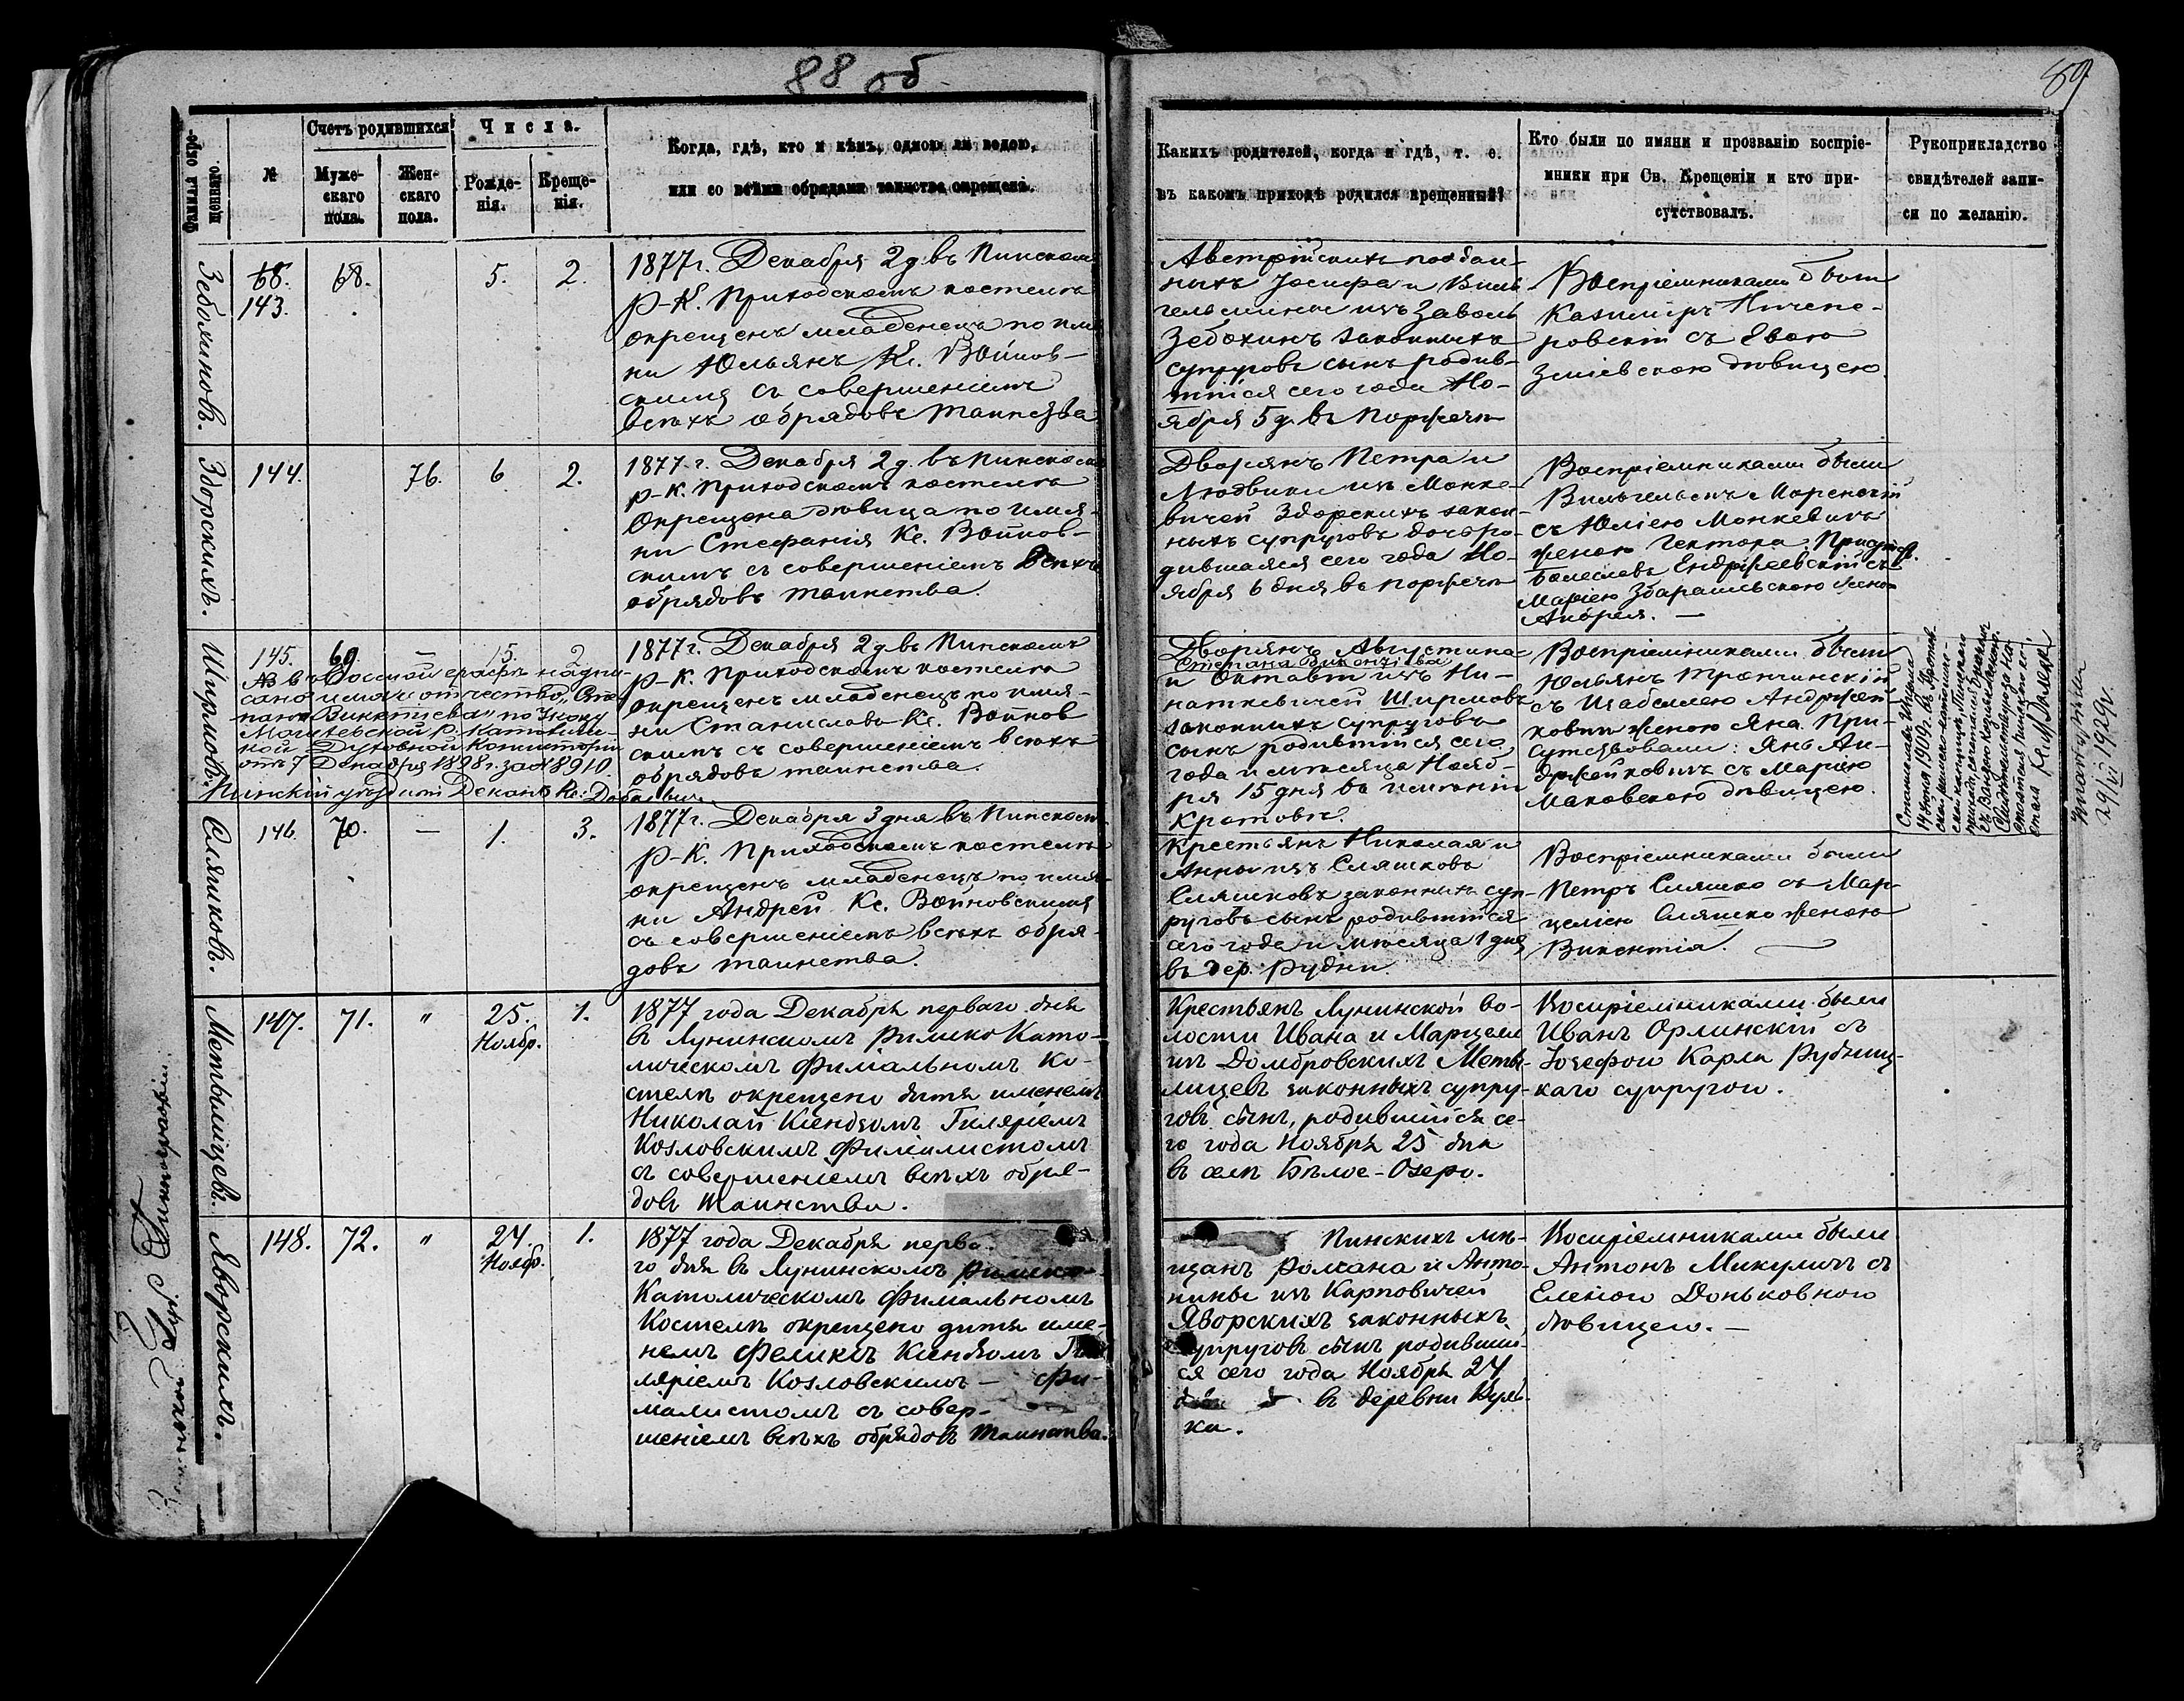 88 об
89
Фамилія окре-
щеннаго
№
Счетъ родившихся
Муже-
скаго
пола.
Жен-
скаго
пола.
Числа.
Рожде-
нія.
Креще-
нія.
Когда, гдѣ, кто и кѣмъ, одною ли водою,
или со всѣми обрядами таинства окрещенъ.
Какихъ родителей, когда и гдѣ, т. е.
въ какомъ приходѣ родился крещенный?
Кто были по имяни и прозванію воспріе-
мники при Св. Крещеніи и кто при-
сутствовалъ.
Рукоприкладство
свидѣтелей запи-
си по желанію.
Зебохиновъ.
68.
143.
68.
5.
2.
1877 г. Декабря 2 д. въ Пинском
Р-К. Приходскомъ костелѣ
окрещенъ младенецъ по имя
ни Юльянъ Кс. Войнов-
скимъ съ совершеніемъ
всѣхъ обрядовъ таинства
Австрійскихъ поддан-
ныхъ Іосифа и Виль-
гельмины изъ Заволь
Зебохинъ законныхъ
супруговъ сынъ родив-
шійся сего года Но-
ября 5 д. въ Порѣчьи
Воспріемниками были
Казиміръ Ничепо-
ровскій съ Евою
Зміевскою дѣвицею.
Здорскихъ.
144.
76.
6
2.
1877 г. Декабря 2 д. въ Пинском
р-к. Приходскомъ костелѣ
Окрещена дѣвица по имя-
ни Стефанія Кс. Войнов-
скимъ съ совершеніемъ всѣхъ
обрядовъ таинства.
Дворянъ Петра и
Людвики изъ Монке-
вичей Здорскихъ закон-
ныхъ супруговъ дочь ро-
дившаяся сего года Но-
ября 6 дня въ Порѣчьи
Воспріемниками были
Вильгельмъ
съ Юліею Монкевичъ
женою Гектора.
Болеславъ Ендржеевскій съ
Маріею Збарашевскою жено
Андрея. —
Ширмовъ.
145.
69
—
15.
2
№ въ
сано имя и отчество „Сте-
пана Викентіева" по Указу
Могилевской Р. Католиче-
ской Духовной Консисторіи
отъ 7 Декабря 1898 г. за № 8910.
Пинскій уѣздный Деканъ Кс:
1877 г. Декабря 2 д. въ Пинскомъ
р-К. Приходскомъ костелѣ
окрещенъ младенецъ по имя-
ни Станиславъ Кс. Войнов
скимъ съ совершеніемъ всѣхъ
обрядовъ таинства.
Дворянъ Августина
Степана Викентіева
и Октавіи изъ Ни-
наткевичей Ширмовъ
законныхъ супруговъ
сынъ родившійся сего
года и мѣсяца Нояб-
ря 15 дня въ имѣніи
Кротовѣ.
Воспріемниками были
Юльянъ
съ Изабеллею Андржей
ковичъ женою Яна. При-
сутствовали: Янъ Ан-
држейковичъ съ Маріею
Маковскою дѣвицею.
Станиславъ Ширма
14 Іюня 1909 г. въ
29/VI 1929 г.
Сляшковъ.
146.
70.
—
1.
3.
1877 г. Декабря 3 дня въ Пинском
Р-К. Приходскомъ костелѣ
окрещенъ младенецъ по имя-
ни Андрей Кс. Войновскимъ
съ совершеніемъ всѣхъ обря-
довъ таинства.
Крестьянъ Николая и
Анны изъ Сляшковъ
Сляшковъ законныхъ суп-
руговъ сынъ родившійся
сего года и мѣсяца 1 дня
въ дер. Рудни
Воспріемниками были
Петръ Сляшко съ Мар-
целію Сляшко женою
Викентія.
Метѣлицевъ.
147.
71.
"
25.
Ноябр.
1.
1877 года Декабря перваго дня
въ Лунинскомъ Римско Като-
лическомъ Филіальномъ Ко-
стелѣ окрещено дитя именемъ
Николай Ксендзомъ Гиляріемъ
Козловскимъ Филіалистомъ
съ совершеніемъ всѣхъ обря-
довъ Таинства.
Крестьянъ Лунинской во-
лости Ивана и Марцели
изъ Домбровскихъ Метѣ-
лицевъ законныхъ супру-
говъ сынъ, родившійся се-
го года Ноября 25 дня
въ селѣ Бѣлое-Озеро.
Воспріемниками были
Иванъ Орлинскій съ
Іозефою Карла Рудниц-
каго супругою.
Яворскихъ.
148.
72.
"
24.
Ноябр.
1.
1877 года Декабря перва-
го дня въ Лунинскомъ Римско-
Католическомъ Филіальномъ
Костелѣ окрещено дитя име-
немъ Феликсъ Ксендзомъ Ги
ляріемъ Козловскимъ — Фи-
лиалистомъ съ совер-
шеніемъ всѣхъ обрядовъ Таинства.
Пинскихъ мѣ-
щанъ Романа и Анто-
нины изъ Карповичей
Яворскихъ законныхъ
супруговъ сынъ родивший-
ся сего года Ноября 24
дня въ деревни Вуль-
ка.
Воспріемниками были
Антонъ Микуличъ съ
Еленою Доньковною
дѣвицею. —